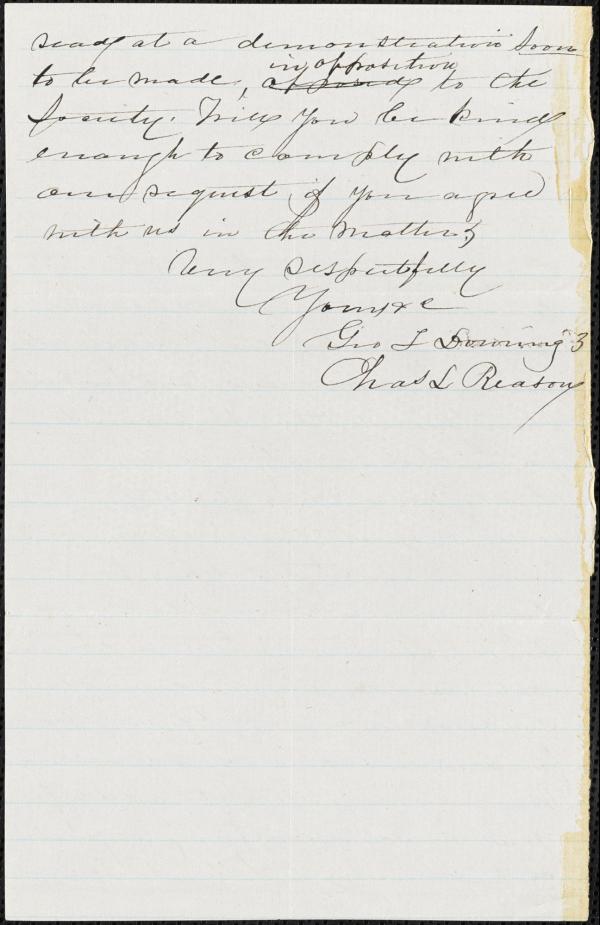 read at a demonstration soon
in opposition
to be made, opposed to the
Society. Will you be kind
enough to comply with
our request, if you agree
with us in the matter,
Very respectfully
Yours &c
Geo T Downing
Chas L Reason